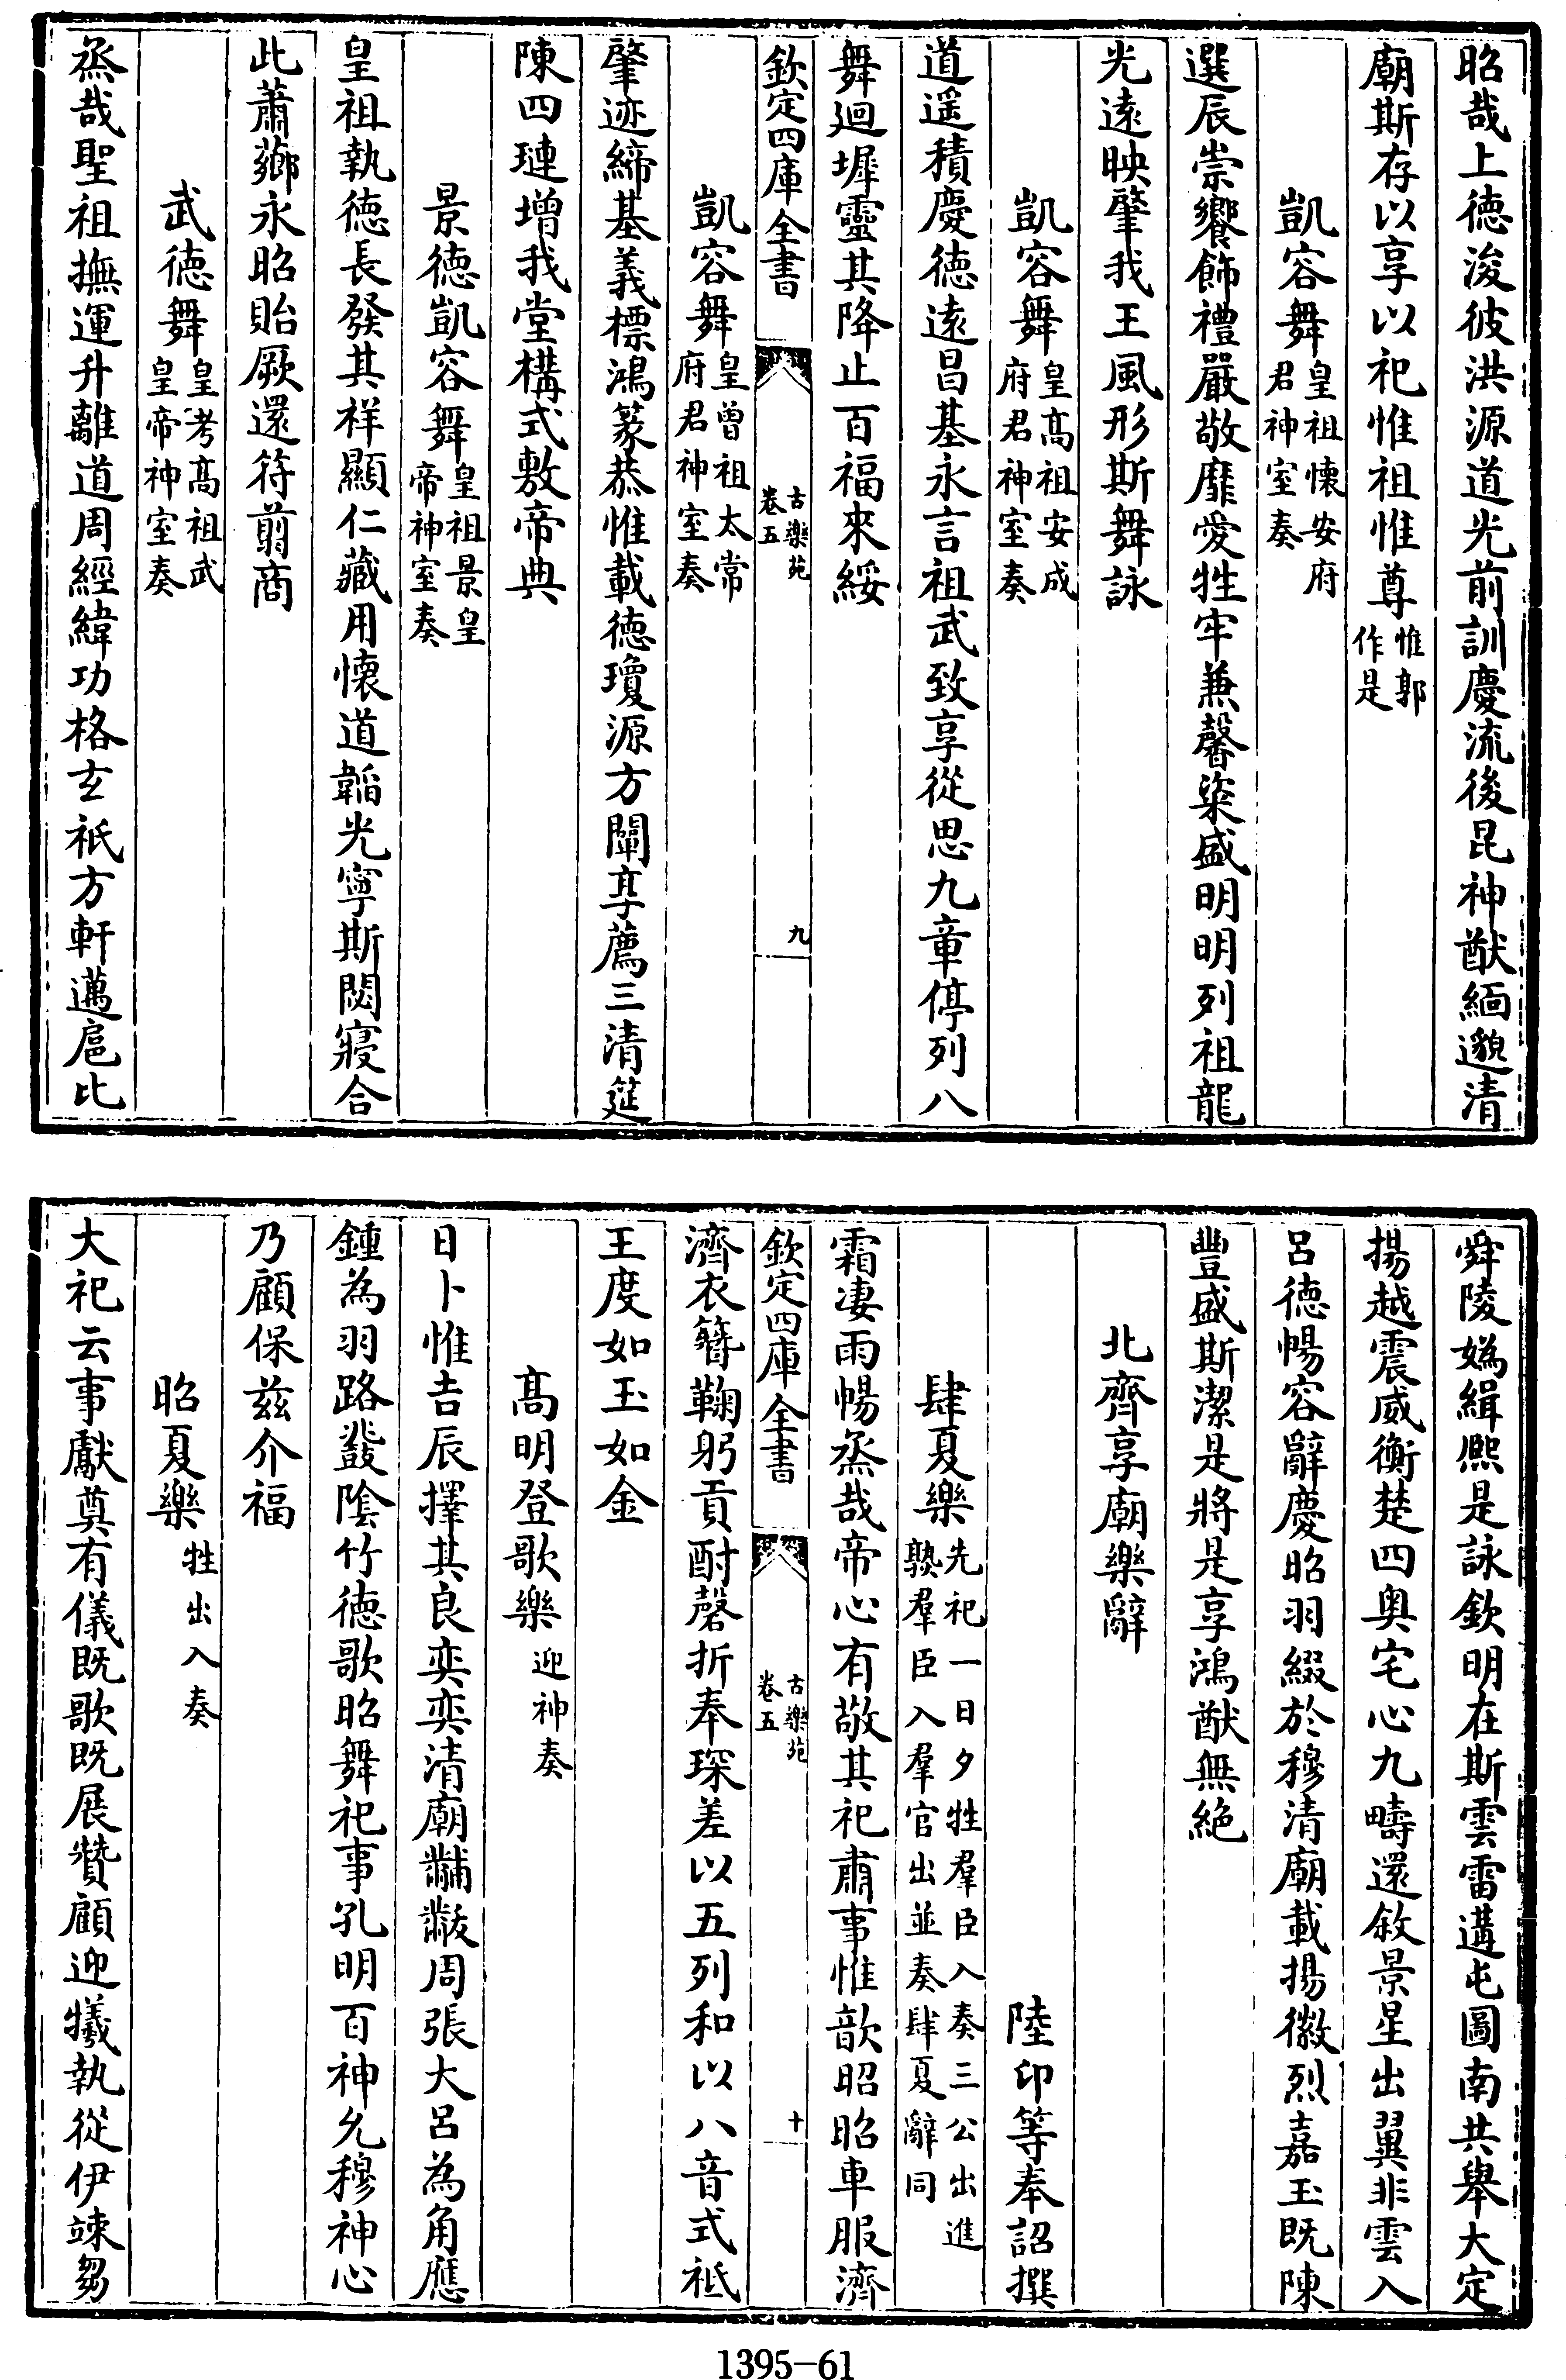 昭哉上德浚彼洪源道光前訓慶流後昆神猷緬邈清
廟斯存以享以祀惟祖惟尊惟郭作是
凱容舞皇祖懷安府君神室奏
選辰崇饗飾禮嚴敬靡愛牲牢兼馨粢盛明明列祖龍
光遠映肇我王風形斯舞詠
凱容舞皇髙祖安成府君神室奏
道遥積慶德遠昌基永言祖武致享從思九章停列八
舞廻墀靈其降止百福來綏
欽定四庫全書
古樂苑卷五
九
凱容舞皇曾祖太常府君神室奏
肇迹締基義標鴻篆恭惟載德瓊源方闡享薦三清筵
陳四璉増我堂構式敷帝典
景德凱容舞皇祖景皇帝神室奏
皇祖執德長發其祥顯仁藏用懷道韜光寧斯閟寢合
此蕭薌永昭貽厥還符翦商
武德舞皇考髙祖武皇帝神室奏
烝哉聖祖撫運升離道周經緯功格玄祇方軒邁扈比
舜陵媯緝熙是詠欽明在斯雲雷遘屯圖南共舉大定
揚越震威衡楚四奥宅心九疇還敘景星出翼非雲入
吕德暢容辭慶昭羽綴於穆清廟載揚徽烈嘉玉既陳
豐盛斯潔是將是享鴻猷無絶
北齊享廟樂辭
陸卬等奉詔撰
肆夏樂先祀一日夕牲羣臣入奏三公出進熟羣臣入羣官出並奏肆夏辭同
霜凄雨暢烝哉帝心有敬其祀肅事惟歆昭昭車服濟
濟衣簪鞠躬貢酎磬折奉琛差以五列和以八音式祗
王度如玉如金
欽定四庫全書
古樂苑卷五
十
髙明登歌樂迎神奏
日卜惟吉辰擇其良奕奕清廟黼黻周張大吕為角應
鍾為羽路鼗陰竹德歌昭舞祀事孔明百神允穆神心
乃顧保兹介福
昭夏樂牲出入奏
大祀云事獻奠有儀既歌既展贊顧迎犧執從伊竦芻
1395-61